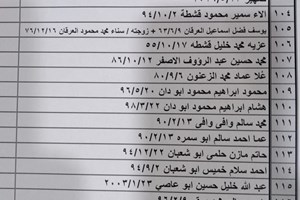 ١٠٤ الاء سمير محمود قشطة ٩٤/١٠/٢
١٠٥ يوسف فضل اسماعيل العرقان ٦٣/٦/٩ + زوجته / سناء محمد محمود العرقان ٧٦/١٢/١٦
١٠٦ عزيه محمد خليل قشطه ٥٥/١٠/١٧
١٠٧ محمد حسين عبد الرؤوف الاصفر ٨٦/١٠/١٢
١٠٨ علا عماد محمد الزعنون ٨٠/٩/٦
١٠٩ محمود ابراهيم محمود ابو دان ٩٦/٥/٢٠
١١٠ هشام ابراهيم محمود ابو دان ٩٨/٣/٢٢
١١١ محمد سالم وافي وافي ٩٠/٢/١٣
١١٢ عما احمد سالم ابو سمره ٩٠/٢/١٣
١١٣ حاتم مازن حلمي ابو شعبان ٩٤/١٢/٢٢
١١٤ احمد سلام خميس ابو شعبان ٩٤/٩/٢
١١٥ عبد الله خليل حسين ابو عاصي ٢٠٠٣/١/٢٣